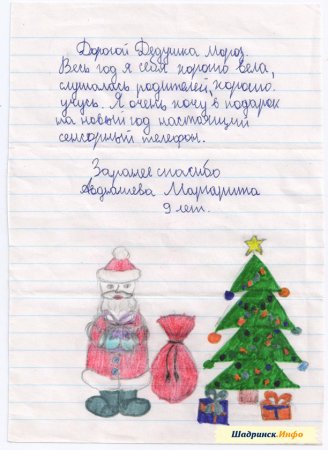 Дорогой Дедушка Мороз.
Весь год я себя хорошо вела,
слушалась родителей, хорошо
учусь. Я очень хочу в подарок
на новый год настоящий
сенсорный телефон.
Заранее спасибо
Авдюшева Маргарита
9 лет.
Шадринск.Инфо